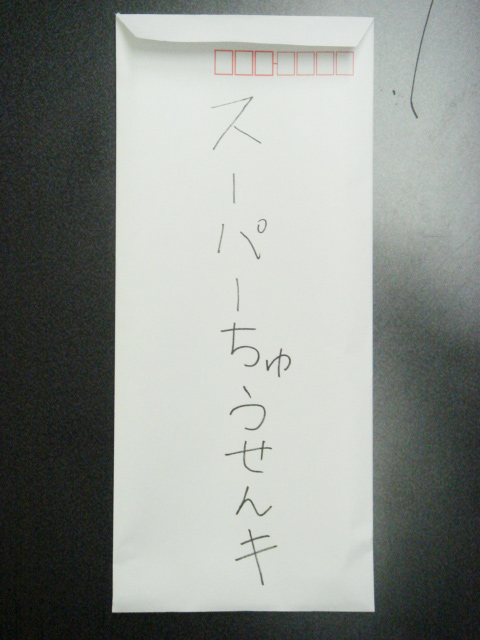 スーパーちゅうせんキ